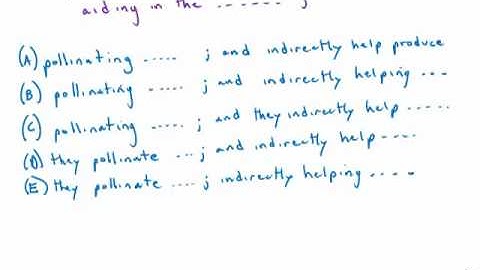 aiding in the ------- ;
(A) pollinating ----- ; and indirectly help produce
(B) pollinating ----- ; and indirectly helping ---
(C) pollinating ----- ; and they indirectly help -----
(D) they pollinate --- ; and indirectly help ----
(E) they pollinate ---- ; indirectly helping ----